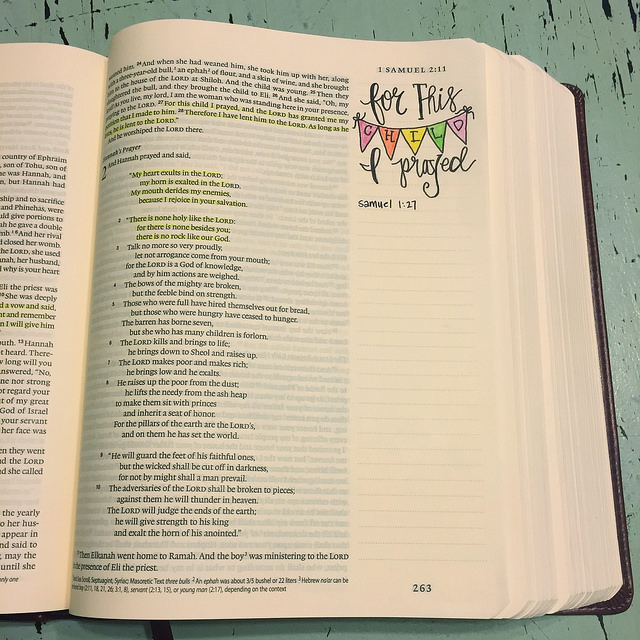 country of Ephraim
son of Tohu, son of
was Hannah, and
n, but Hannah had
ship and to sacrifice
and Phinehas, were
uld give portions to
ah he gave a double
mb. And her rival
d closed her womb.
the LORD, she used
nah, her husband,
why is your heart
Eli the priest was
She was deeply
d a vow and said,
nt and remember
n I will give him
outh. 13 Hannah
t heard. There-
w long will you
answered, "No,
ne nor strong
ot regard your
t of my great
God of Israel
your servant
her face was
en they went
d the LORD
d she called
the yearly
o her hus-
appear in
nd said to
may the
until she
only one
1 SAMUEL 2:11
him. 24 And when she had weaned him, she took him up with her, along
a three-year-old bull, an ephah of flour, and a skin of wine, and she brought
to the house of the LORD at Shiloh. And the child was young. 25 Then they
the bull, and they brought the child to Eli. 26 And she said, "Oh, my
you live, my lord, I am the woman who was standing here in your presence,
to the LORD. 27 For this child I prayed, and the LORD has granted me my
that I made to him. 28 Therefore I have lent him to the LORD. As long as he
he is lent to the LORD."
And he worshiped the LORD there.
Hannah's Prayer
2 And Hannah prayed and said,
"My heart exults in the LORD;
my horn is exalted in the LORD.
My mouth derides my enemies,
because I rejoice in your salvation.
2 "There is none holy like the LORD:
for there is none besides you;
there is no rock like our God.
3 Talk no more so very proudly,
let not arrogance come from your mouth;
for the LORD is a God of knowledge,
and by him actions are weighed.
4 The bows of the mighty are broken,
but the feeble bind on strength.
5 Those who were full have hired themselves out for bread,
but those who were hungry have ceased to hunger.
The barren has borne seven,
but she who has many children is forlorn.
6 The LORD kills and brings to life;
he brings down to Sheol and raises up.
7 The LORD makes poor and makes rich;
he brings low and he exalts.
8 He raises up the poor from the dust;
he lifts the needy from the ash heap
to make them sit with princes
and inherit a seat of honor.
For the pillars of the earth are the LORD's,
and on them he has set the world.
9 "He will guard the feet of his faithful ones,
but the wicked shall be cut off in darkness,
for not by might shall a man prevail.
10 The adversaries of the LORD shall be broken to pieces;
against them he will thunder in heaven.
The LORD will judge the ends of the earth;
he will give strength to his king
and exalt the horn of his anointed."
Then Elkanah went home to Ramah. And the boy was ministering to the LORD
in the presence of Eli the priest.
Scroll, Septuagint, Syriac; Masoretic Text three bulls 2 An ephah was about 3/5 bushel or 22 liters 3 Hebrew na'ar can be
(2:11, 18, 21, 26; 3:1, 8), servant (2:13, 15), or young man (2:17), depending on the context
for This
CHILD
I prayed
Samuel 1:27
263